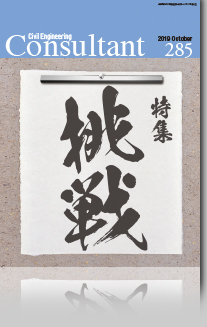 Civil Engineering
Consultant
2019 October
285
特集
挑戦